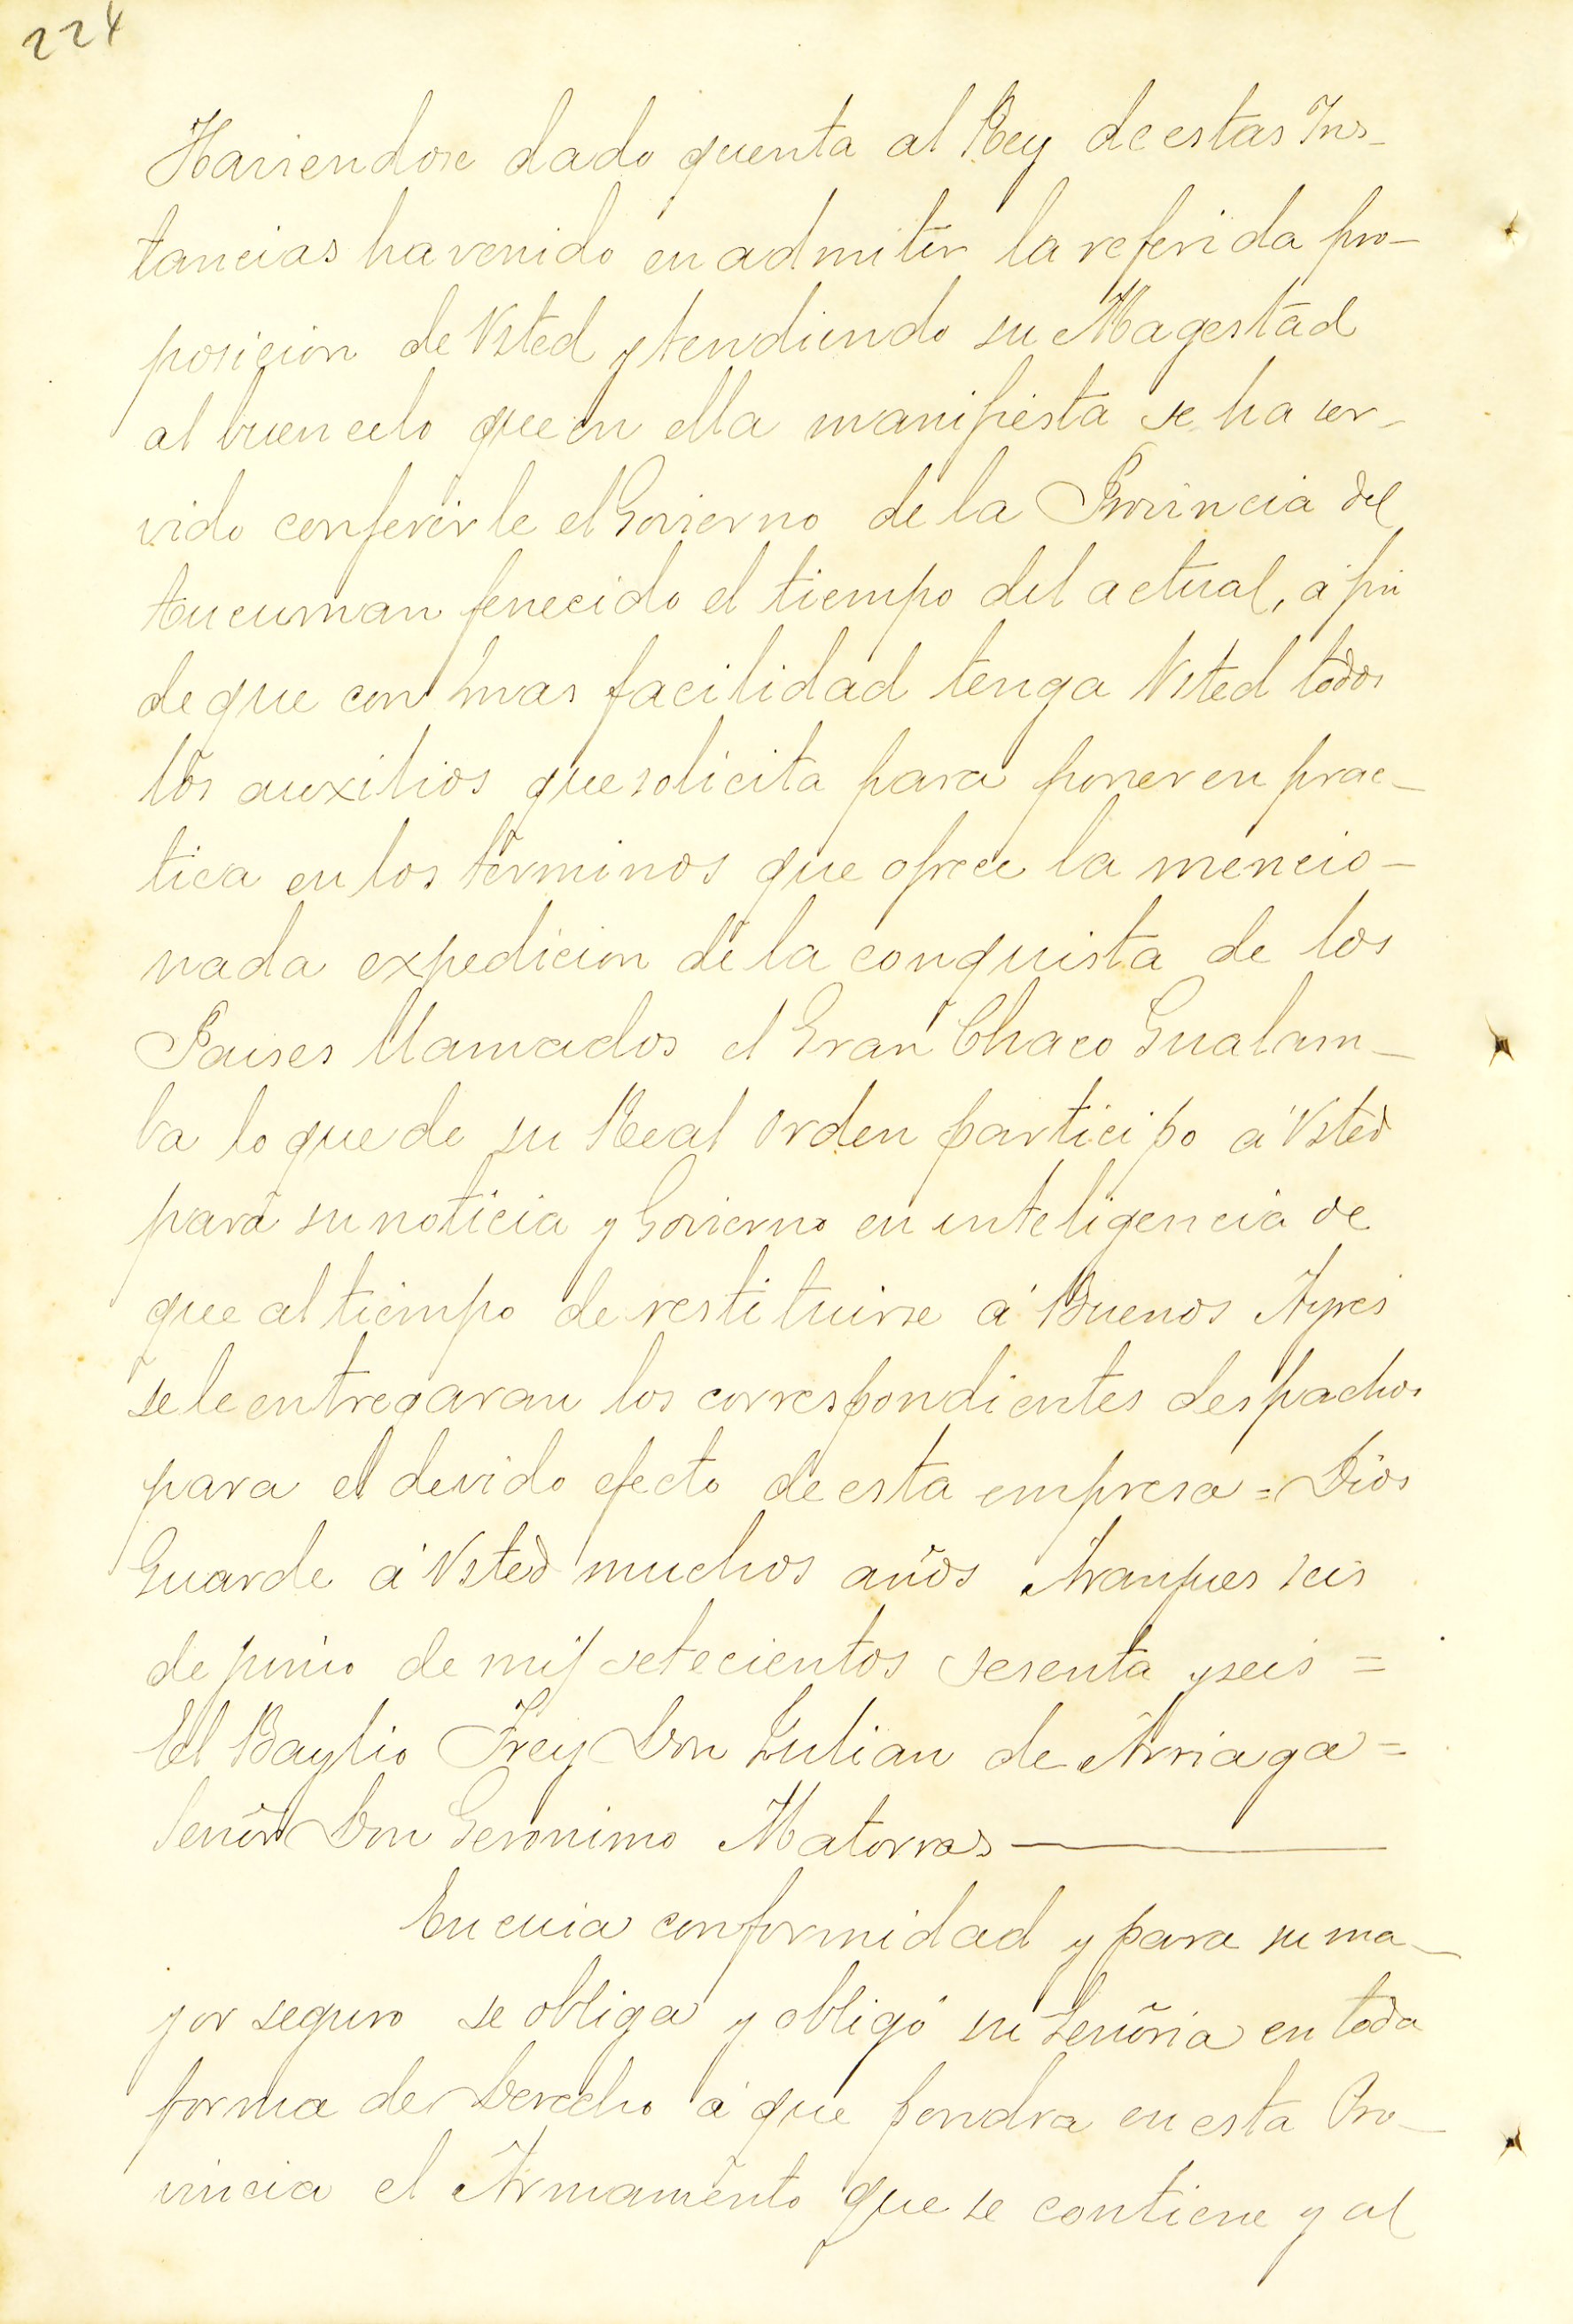 224
Haviendose dado quenta al Rey de estas Ins-
tancias ha venido en admitir la referida pro-
posicion de Vsted y tendiendo su Magestad
al buen celo que en ella manifiesta se ha ser-
vido conferirle el Govierno de la Provincia del
tucuman fenecido el tiempo del actual, á fin
de que con mas facilidad tenga Vsted todos
los auxilios que solicita para poner en prac-
tica en los terminos que ofrece la mencio-
nada expedicion de la conquista de los
Paises llamados el Gran Chaco Gualam-
ba lo que de su Real orden participo á Vsted
para su noticia y Govierno en inteligencia de
que al tiempo de restituirse á Buenos Ayres
se le entregaran los correspondientes despachos
para el devido efecto de esta empresa = Dios
Guarde á Vsted muchos años Aranjues seis
de junio de mil setecientos sesenta y seis =
El Baylio Frey Don Julian de Arriaga =
Señor Don Geronimo Matorras
En cuia conformidad y para su ma-
yor seguro se obliga y obligó su Señoria en toda
forma de Derecho á que pondra en esta Pro-
vincia el Armamento que se contiene y al